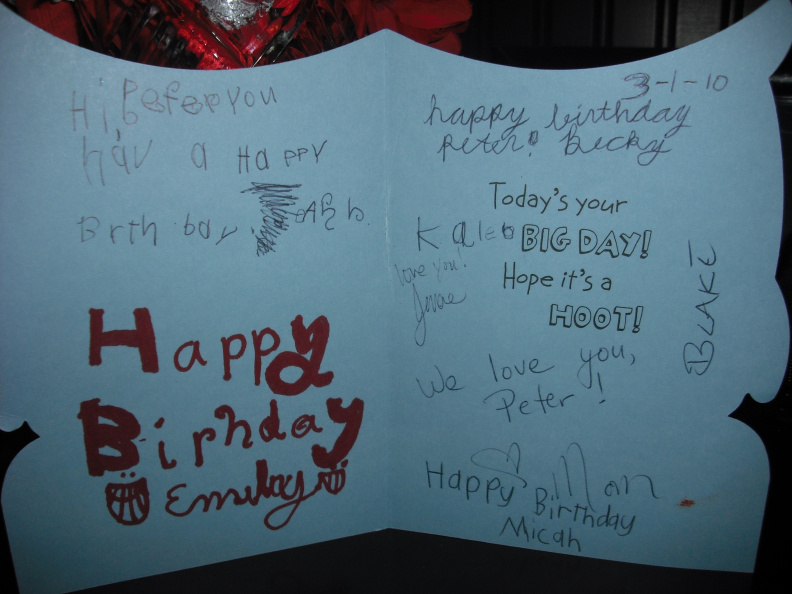 Hi, Peter you
hav a Happy
Brth bay!
Happy
Birhday
Emily
3-1-10
happy birthday
Peter! Becky
Today's your
BIG DAY!
Hope it's a
HOOT!
Kaleb
love you!
BLAKE
We love you,
Peter!
Mom
Happy Birthday
Micah